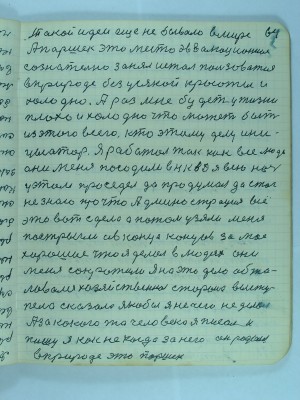 Такой идеи еще не бывало в мире 64
А паршек это место эввакоционния
сознателно занял и стал ползоватся
в природе без усякой красоты и
холодно. А раз мне будет у жизни
плохо и холодно что может быть
из этого всего, кто этому делу ини-
циатор. Я работал так как все люде
они меня посодили в НКВД я всю ноч
у этом проседел да продумал да стал
не знаю про что Администрация всё
это вот сделала потом узяли меня
постригли и в конце концов за мое
хорошее что я делал в людех они
меня сократили я на это дело обжа-
ловал хозяйственная сторона высту-
пела сказала якобы я нечего не делаю
А за какого то человека я писал и
пишу я как не когда за него он родился
в природе это паршек